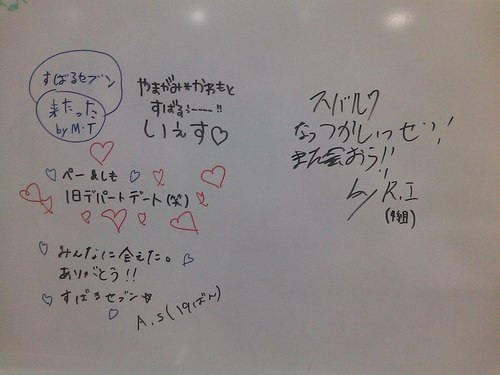 すばるセブン
来たった
by M・T
やまがみ*かわもと
すばるぅ------!!
しいぇす♡
ぺー&しも
1日デパートデート(笑)
みんなに会えた。
ありがとう!!
すばるセブン☆
A.S(19ばん)
スバル7
なっつかしいっせ!!
また会おう!!
by R.I